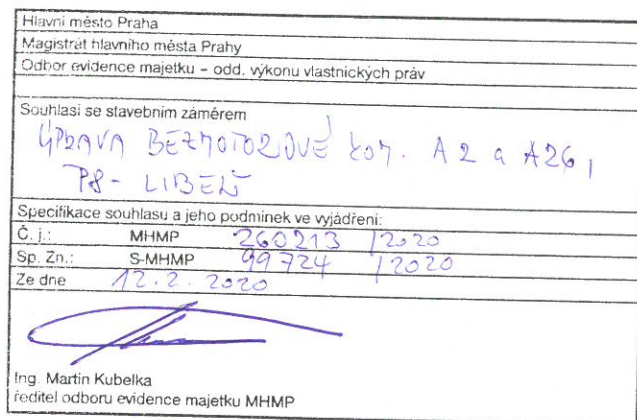 Hlavní město Praha
Magistrát hlavního města Prahy
Odbor evidence majetku – odd. výkonu vlastnických práv
Souhlasí se stavebním záměrem
ÚPRAVA BEZMOTOROVÉ KOM. A2 a A26,
P8 - LIBEŇ
Specifikace souhlasu a jeho podmínek ve vyjádření:
Č. j.: MHMP 260213 /2020
Sp. Zn.: S-MHMP 99724 /2020
Ze dne 12.2.2020
Ing. Martin Kubelka
ředitel odboru evidence majetku MHMP